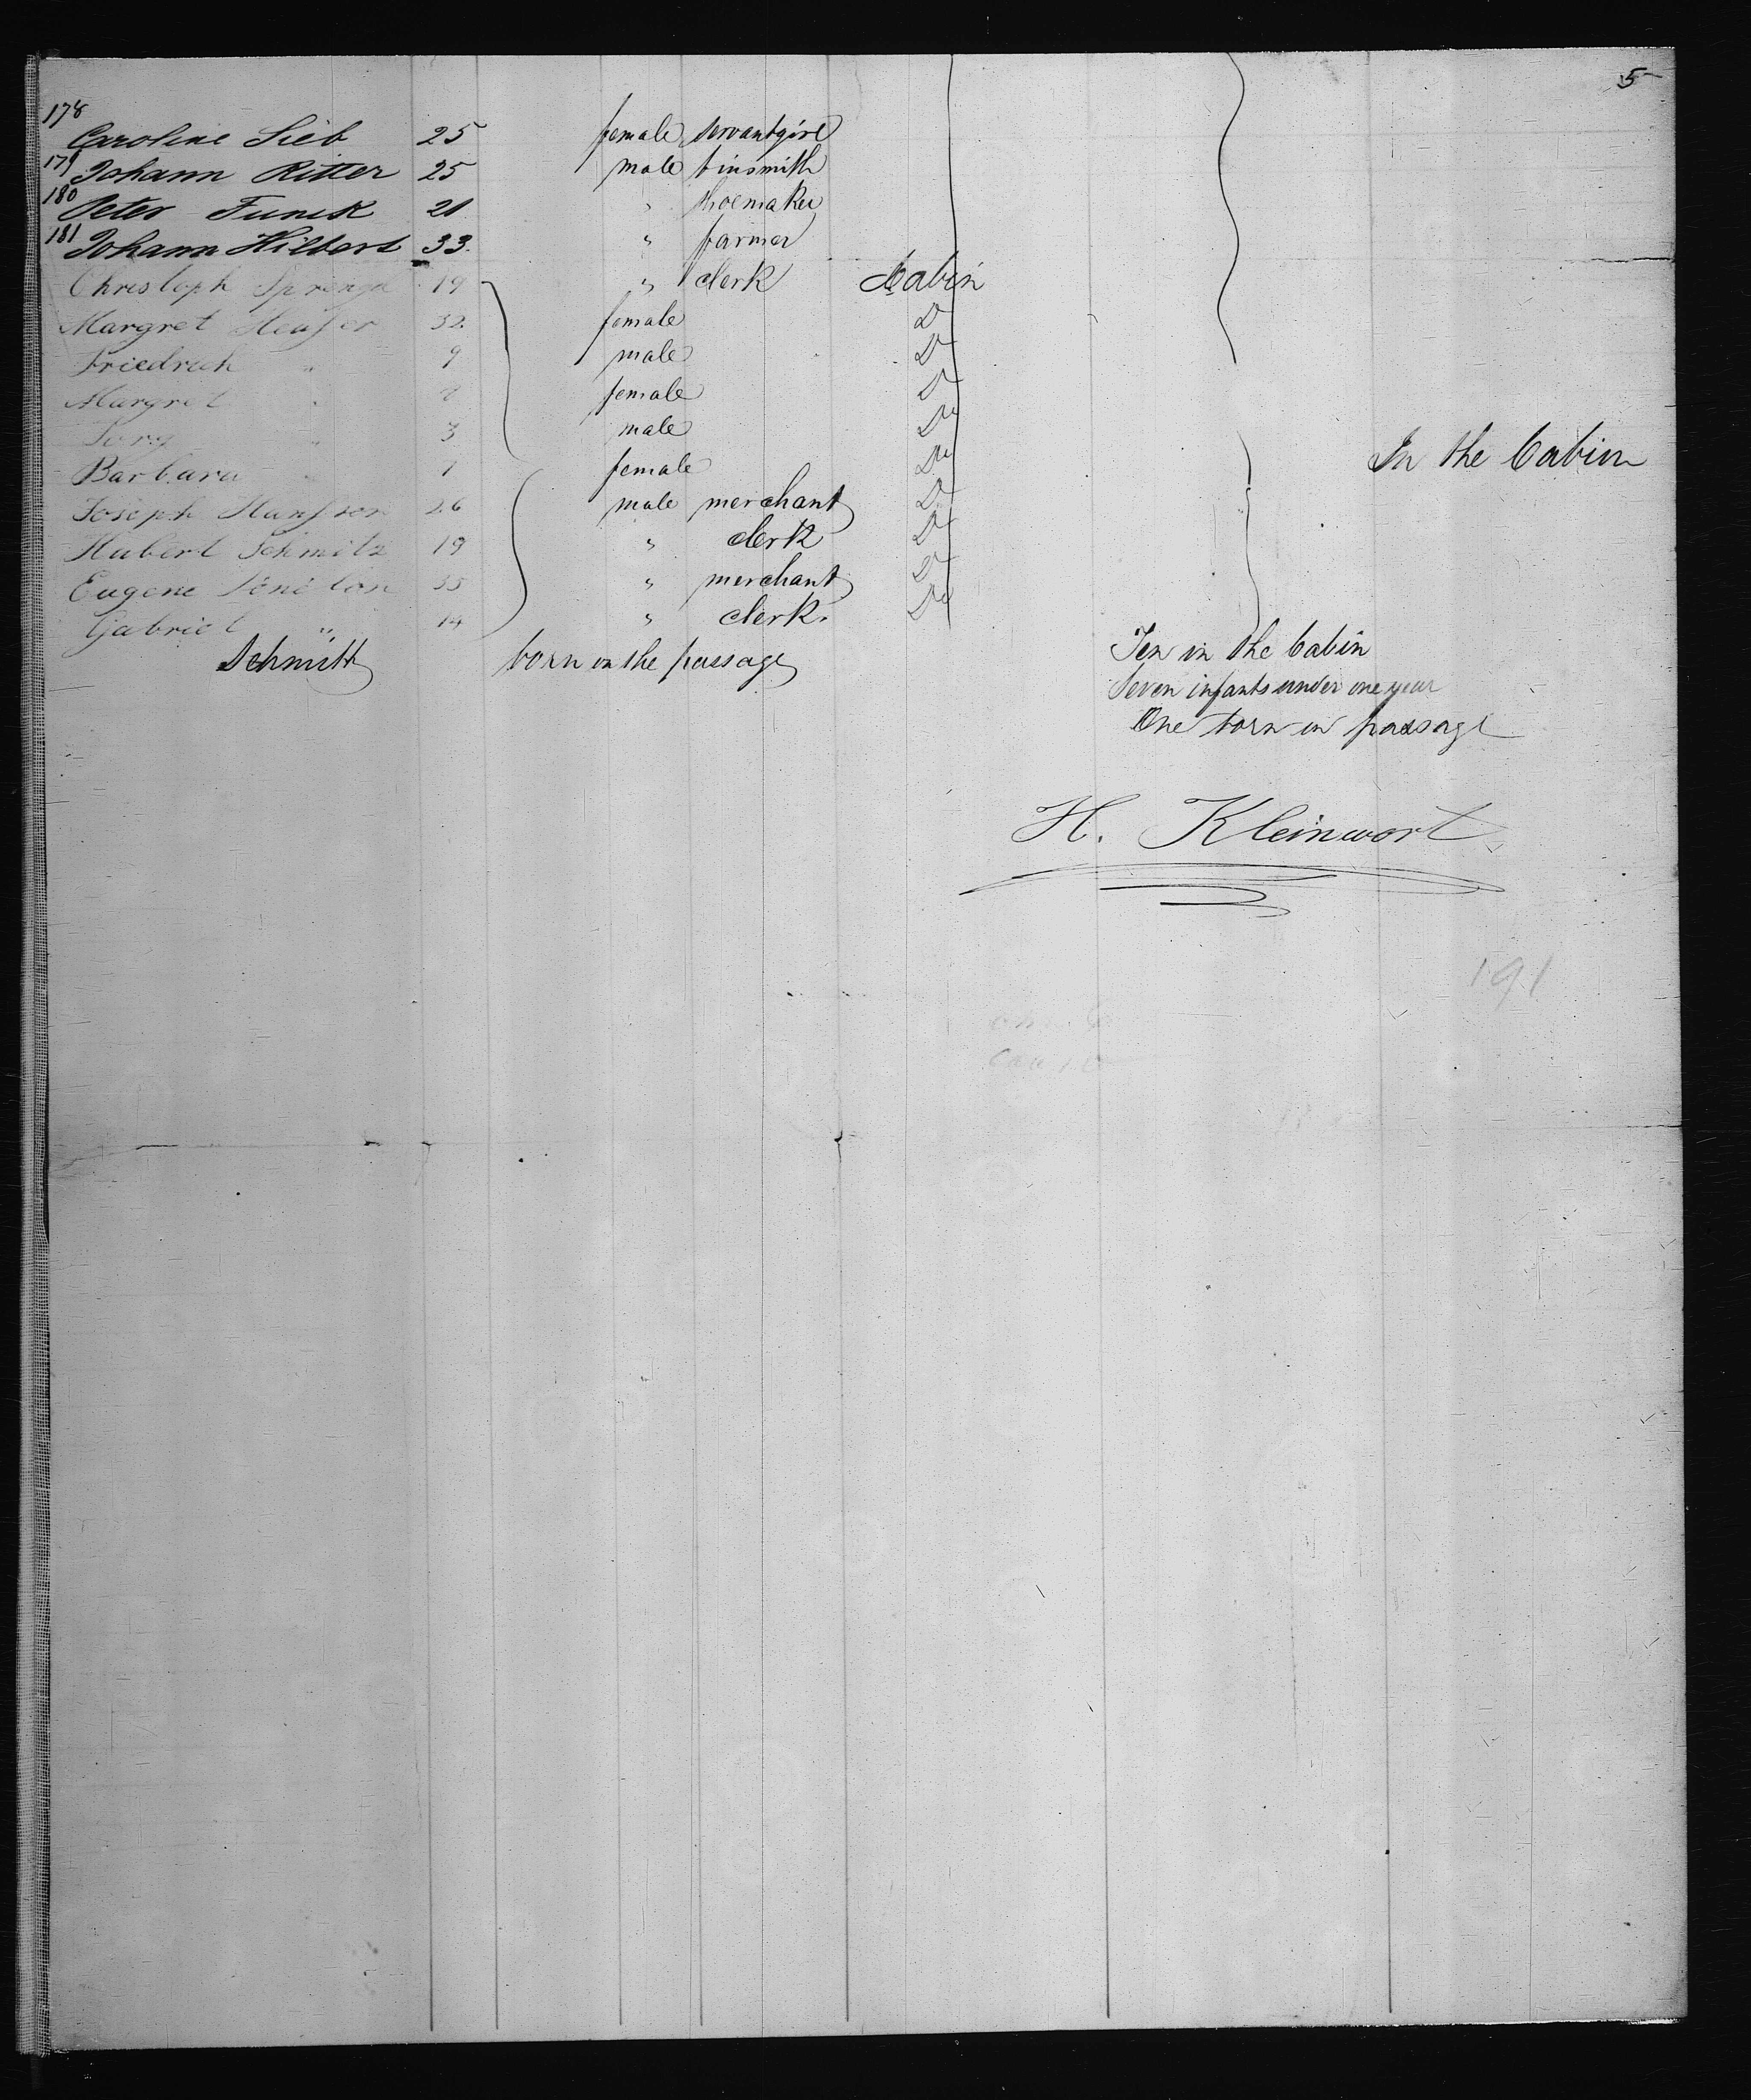 5
178 Caroline Sieb 25 female servantgirl
179 Johann Ritter 25 male tinsmith
180 Peter Funck 21 " shoemaker
181 Johann Hilbert 33. " farmer
Christoph 19 " clerk Cabin
Margret Heuser 32. female Do
Friedrich " 9 male Do
Margret " female Do
" 3 male Do
Barbara " 1 female Do
In the Cabin
Joseph 26 male merchant Do
Hubert Schmitz 19 " clerk Do
Eugene " merchant Do
Gabriel " 14 " clerk. Do
Schmitt born on the passage
Ten in the Cabin
Seven infants under one year
One born on passage
H. Kleinwort
191